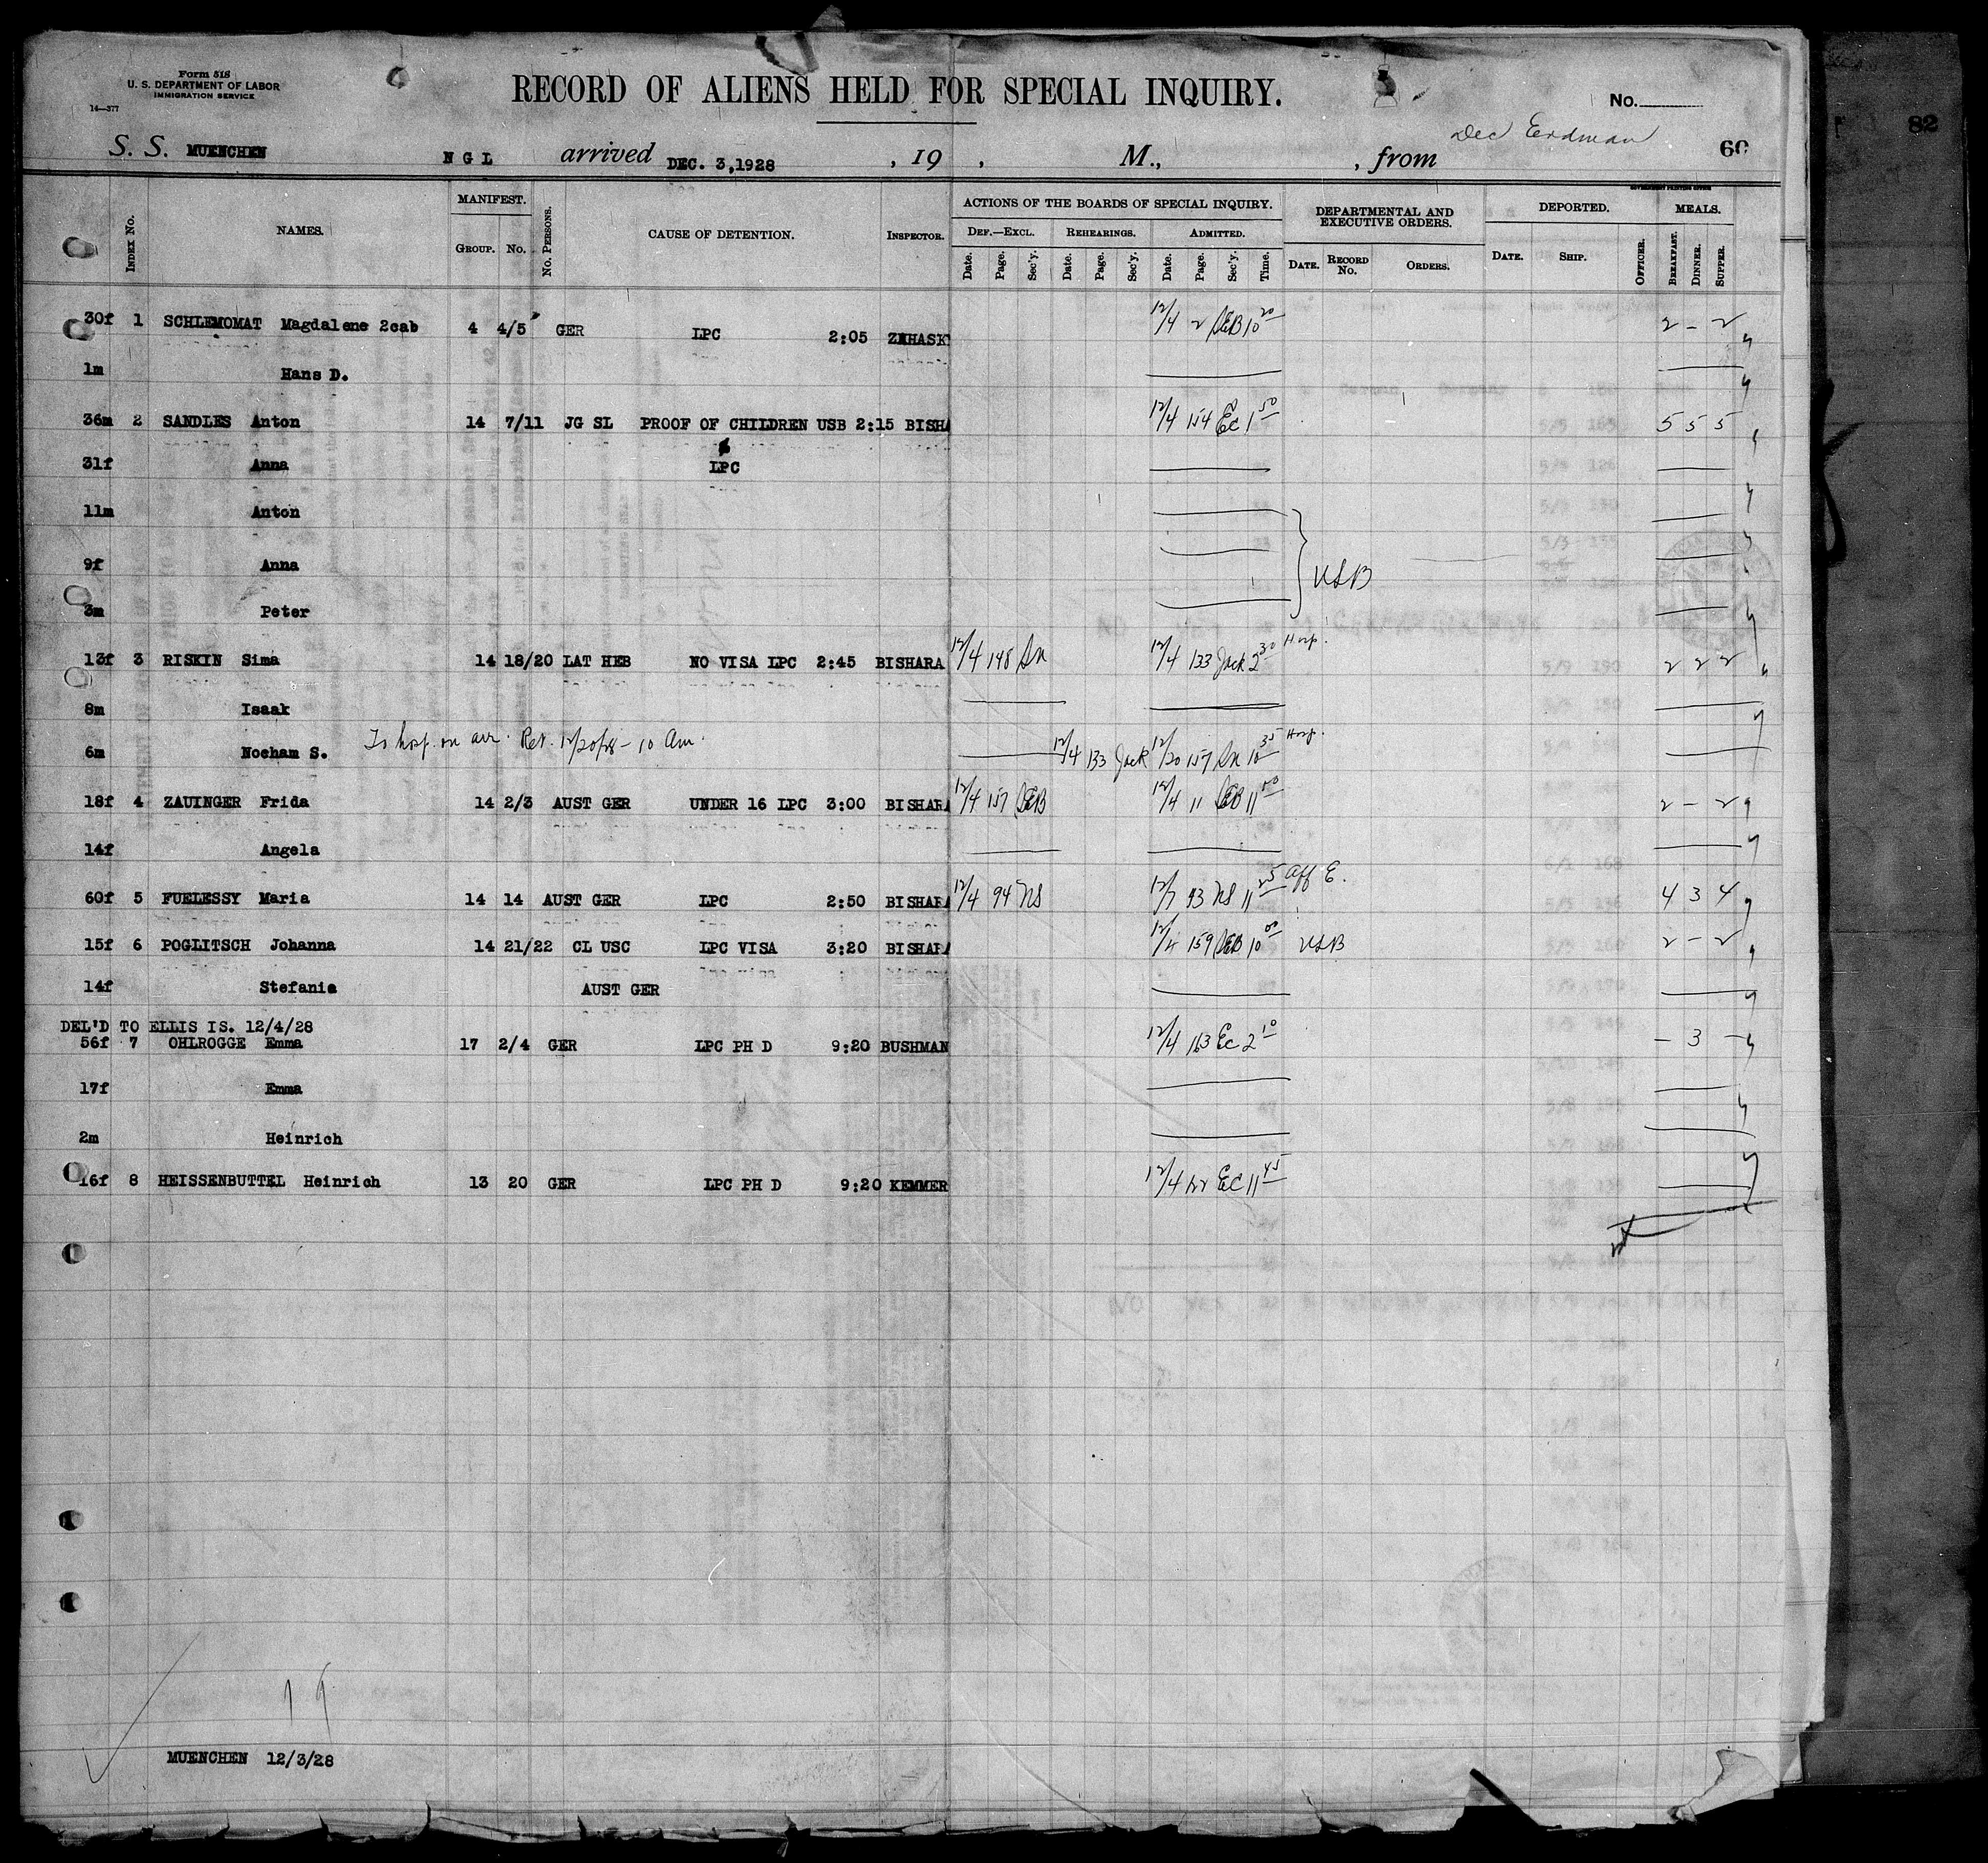 Form 518
U. S. DEPARTMENT OF LABOR
IMMIGRATION SERVICE
14—377
RECORD OF ALIENS HELD FOR SPECIAL INQUIRY.
No.
Dec Erdman
S. S. MUENCHEN N G L arrived DEC. 3,1928 , 19 , M., , from 60
82
GOVERNMENT PRINTING OFFICE
MANIFEST. ACTIONS OF THE BOARDS OF SPECIAL INQUIRY. DEPARTMENTAL AND EXECUTIVE ORDERS. DEPORTED. MEALS.
INDEX No. NAMES. GROUP. No. No. PERSONS. CAUSE OF DETENTION. INSPECTOR. DEF.—EXCL. REHEARINGS. ADMITTED.
Date. Page. Sec'y. Date. Page. Sec'y. Date. Page. Sec'y. Time. DATE. RECORD No. ORDERS. DATE. SHIP. OFFICER. BREAKFAST. DINNER. SUPPER.
30f 1 SCHLEMOMAT Magdalene 2cab 4 4/5 GER LPC 2:05 12/4 2 SEB 10 20 2 – 2
1m Hans D.
36m 2 SANDLES Anton 14 7/11 JG SL PROOF OF CHILDREN USB 2:15 BISHA 12/4 154 EC 1 50 5 5 5
31f Anna LPC
11m Anton
9f Anna USB
3m Peter
13f 3 RISKIN Sima 14 18/20 LAT HEB NO VISA LPC 2:45 BISHARA 12/4 148 Sn 12/4 133 Jack 2 30 Hosp. 2 2 2
8m Isaak
6m Nocham S. To hosp. on arr. Ret. 12/20/28 – 10 Am. 12/4 133 Jack 12/20 157 Sn 10 35 Hosp.
18f 4 ZAUINGER Frida 14 2/3 AUST GER UNDER 16 LPC 3:00 BISHARA 12/4 157 SEB 12/4 11 SEB 11 50 2 – 2
14f Angela
60f 5 FUELESSY Maria 14 14 AUST GER LPC 2:50 BISHARA 12/4 94 NS 12/7 93 NS 11 25 Aff E. 4 3 4
15f 6 POGLITSCH Johanna 14 21/22 CL USC LPC VISA 3:20 BISHARA 12/4 159 SEB 10 00 USB 2 – 2
14f Stefanie AUST GER
DEL'D TO ELLIS IS. 12/4/28
56f 7 OHLROGGE Emma 17 2/4 GER LPC PH D 9:20 BUSHMAN 12/4 163 EC 2 10 – 3 –
17f Emma
2m Heinrich
16f 8 HEISSENBUTTEL Heinrich 13 20 GER LPC PH D 9:20 KEMMER 12/4 EC 11 45
19
MUENCHEN 12/3/28